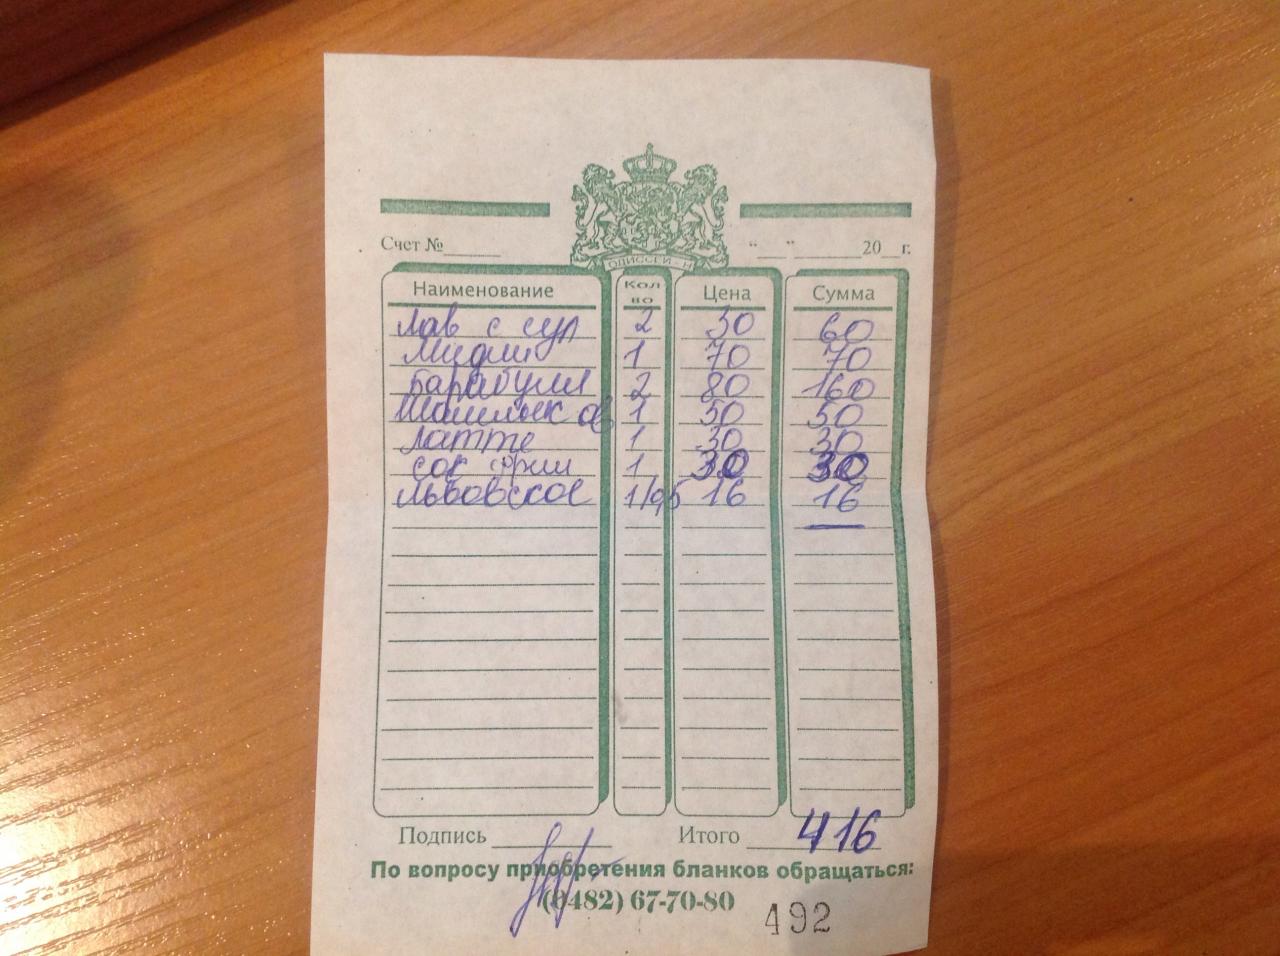 ОДИССЕЙ - Н
Счет № ______ “__” ______ 20__г.
Наименование Кол во Цена Сумма
Лав с сул 2 30 60
Мидии 1 70 70
Барабуля 2 80 160
Шашлык ов 1 50 50
Латте 1 30 30
сок фреш 1 30 30
Львовское 1/0,5 16 16
Подпись ______ Итого 416
По вопросу приобретения бланков обращаться:
(0482) 67-70-80
492